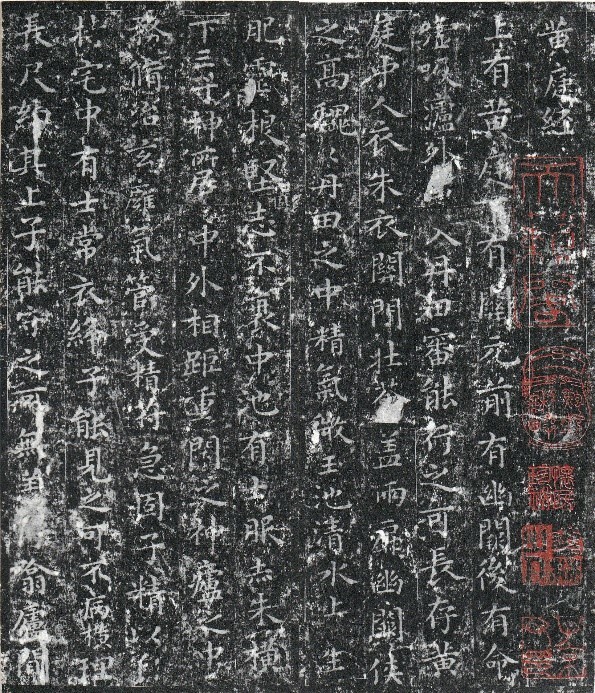 黄庭経
上有黄庭有關元前有幽闕後有命
嘘吸廬外入丹田審能行之可長存黄
庭中人衣朱衣關門壮籥盖兩扉幽闕俠
之高巍〻丹田之中精氣微玉池清水上生
肥靈根堅志不衰中池有士服赤朱横
下三寸神所居中外相距重閇之神廬之中
務脩治玄膺氣管受精符急固子精以自
持宅中有士常衣絳子能見之可不病横理
長尺約其上子能守之可無恙翕廬間